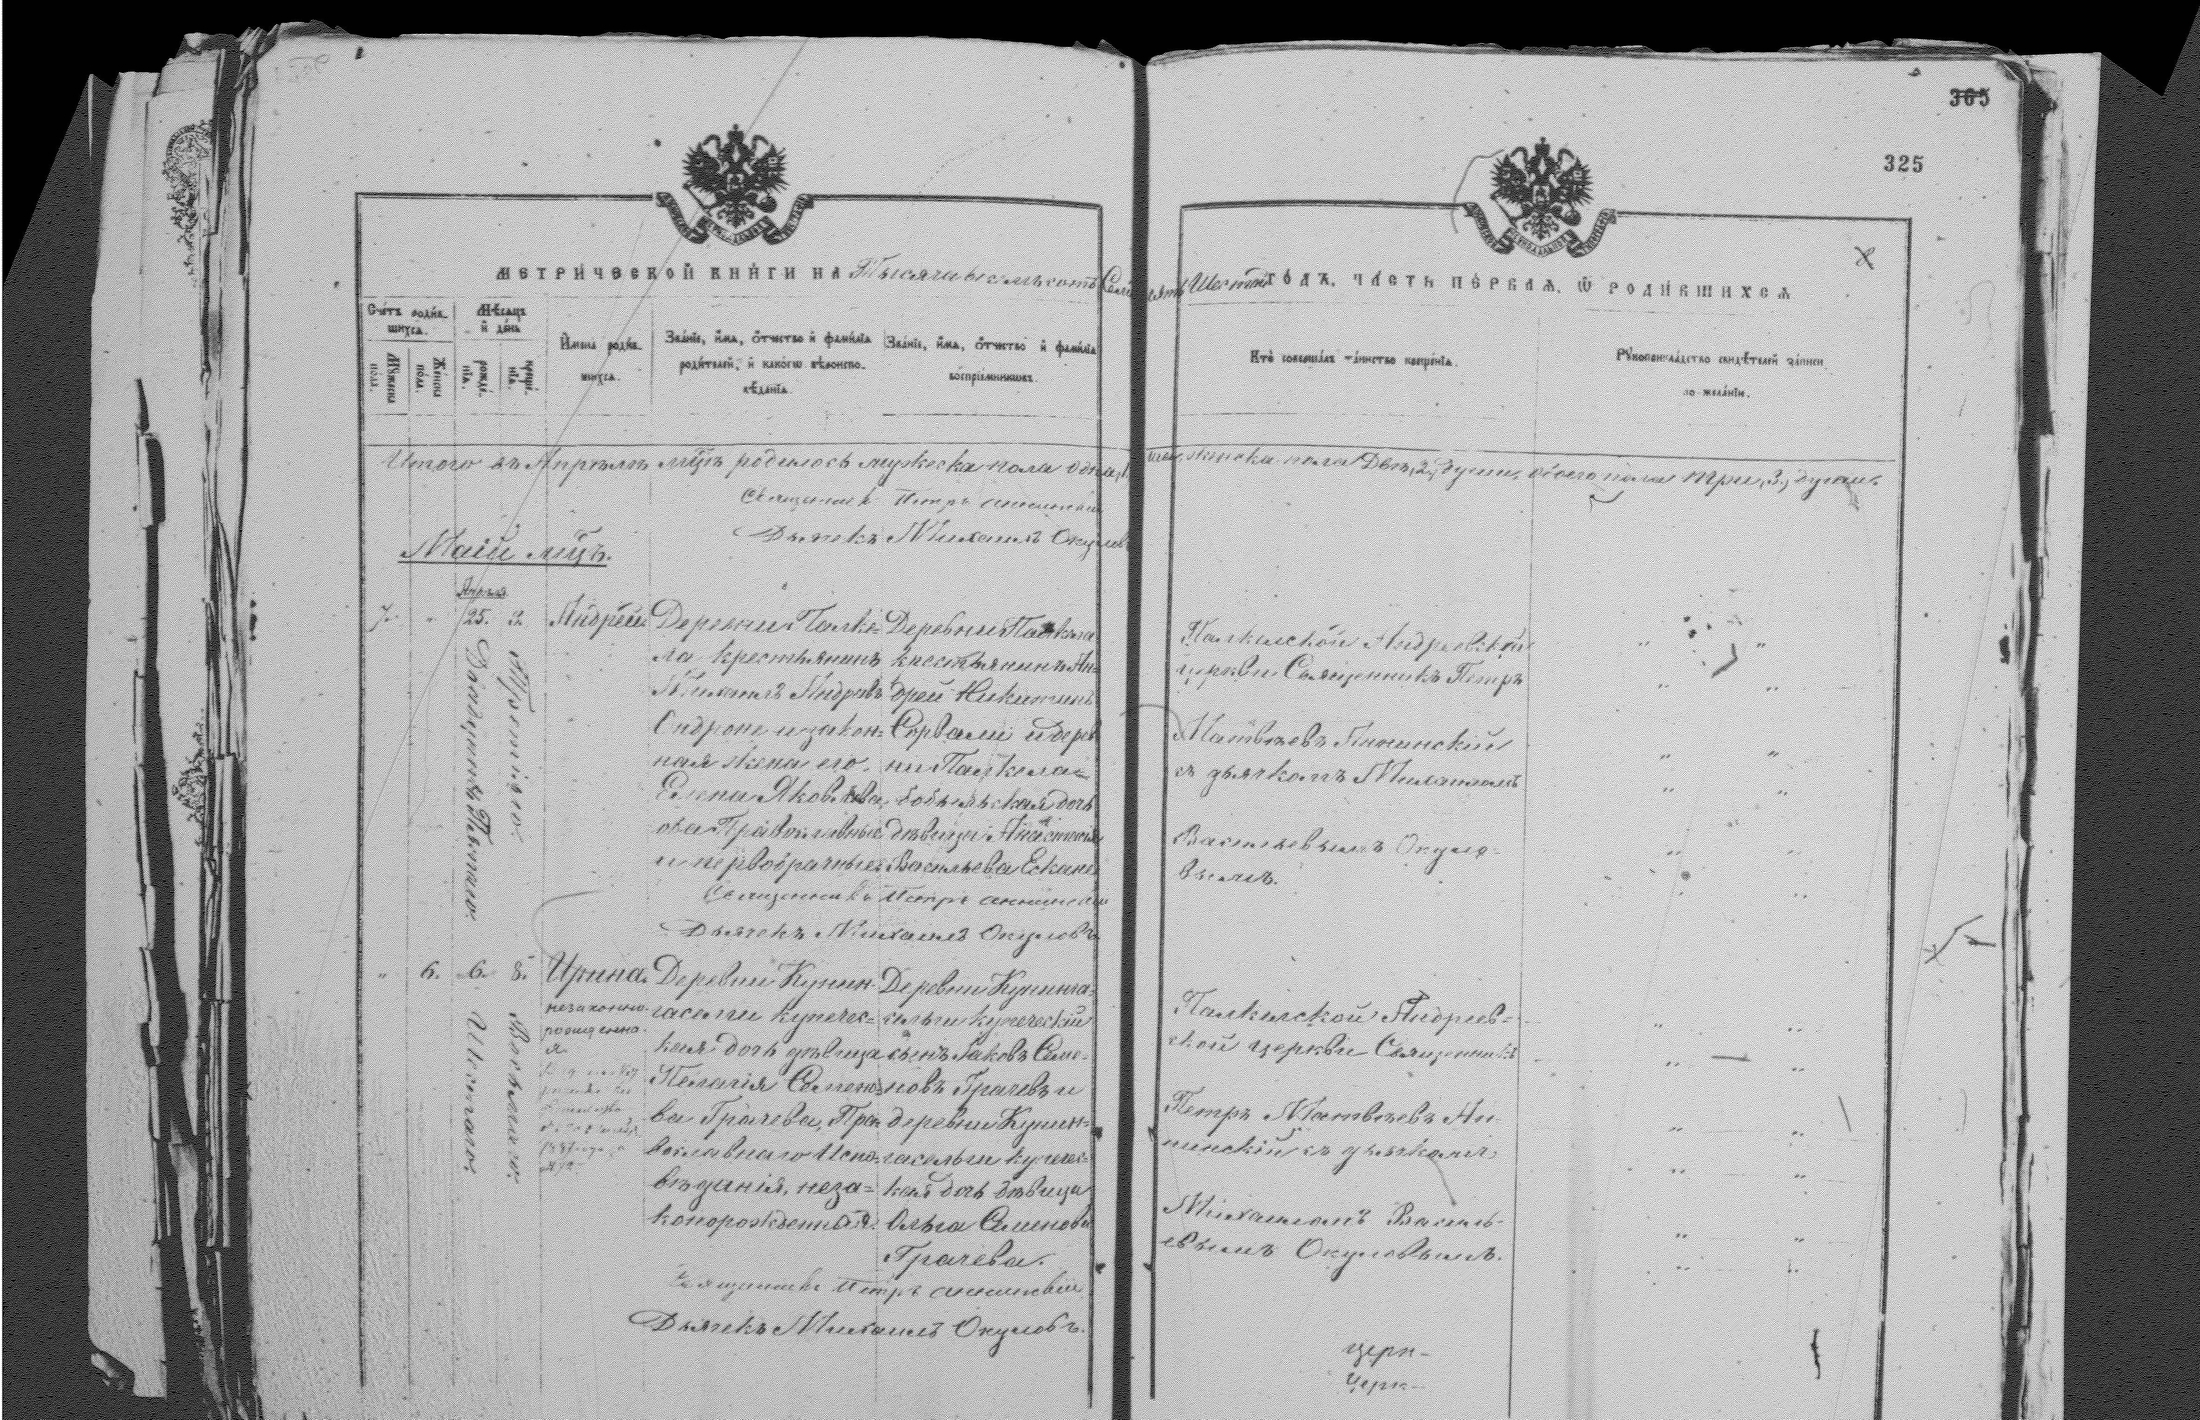 365
325
МЕТРИЧЕСКОЙ КНИГИ НА Тысяча восемьсотъ Семьдесятъ Шестый ГОДЪ, ЧАСТЬ ПЕРВАЯ, Ѿ РОДИВШИХСЯ
Счетъ родившихся.
Мужеска пола.
Женска пола.
Мѣсяцъ и день
рожденія.
крещенія.
Имена родившихся.
Званіе, имя, отчество и фамилія родителей, и какого вѣроисповѣданія.
Званіе, имя, отчество и фамилія воспріемниковъ.
Кто совершалъ таинство крещенія.
Рукоприкладство свидѣтелей записи по желанію.
Итого въ Апрѣлѣ мцѣ родилось мужеска пола одна, 1, женска пола Двѣ, 2, души, обоего пола три, 3, души.
Священникъ Петръ
Дьячекъ Михаилъ Окуловъ
Маій мцъ.
7.
"
Апрѣля
25.
Двадцать Пятаго.
3.
Третіяго.
Андрей.
Деревни Палке-
ла крестьянинъ
Михаилъ Андреевъ
Ондроне и закон-
ная жена его,
Елена Яковлева,
оба Православные
и первобрачные.
Деревни Палкела
крестьянинъ Ан-
дрей Никитинъ
и дерев-
ни Палкела
бобыльская дочь
дѣвица Анастасія
Васильева
Священникъ Петръ
Дьячекъ Михаилъ Окуловъ.
Палкельской Андреевской
церкви Священникъ Петръ
Матвѣевъ Аннинскій
съ дьячкомъ Михаиломъ
Васильевымъ Окуло-
вымъ.
"
6.
6.
Шестаго.
8.
Восьмаго.
Ирина.
незаконно-
рожденна-
я.
Деревни Кунин-
гасельги купечес-
кая дочь дѣвица
Пелагія Семено-
ва Грачева, Пра-
вославнаго Испо-
вѣданія, неза-
конорожденная.
Деревни Кунинга-
сельги купеческій
сынъ Іаковъ Семе-
новъ Грачевъ и
деревни Кунин-
гасельги купечес-
кая дочь дѣвица
Ольга Семенова
Грачева.
Священникъ Петръ
Дьячекъ Михаилъ Окуловъ.
Палкельской Андреев-
ской церкви Священникъ
Петръ Матвѣевъ Ан-
нинскій съ дьячкомъ
Михаиломъ Василь-
евымъ Окуловымъ.
церк-
Церк-